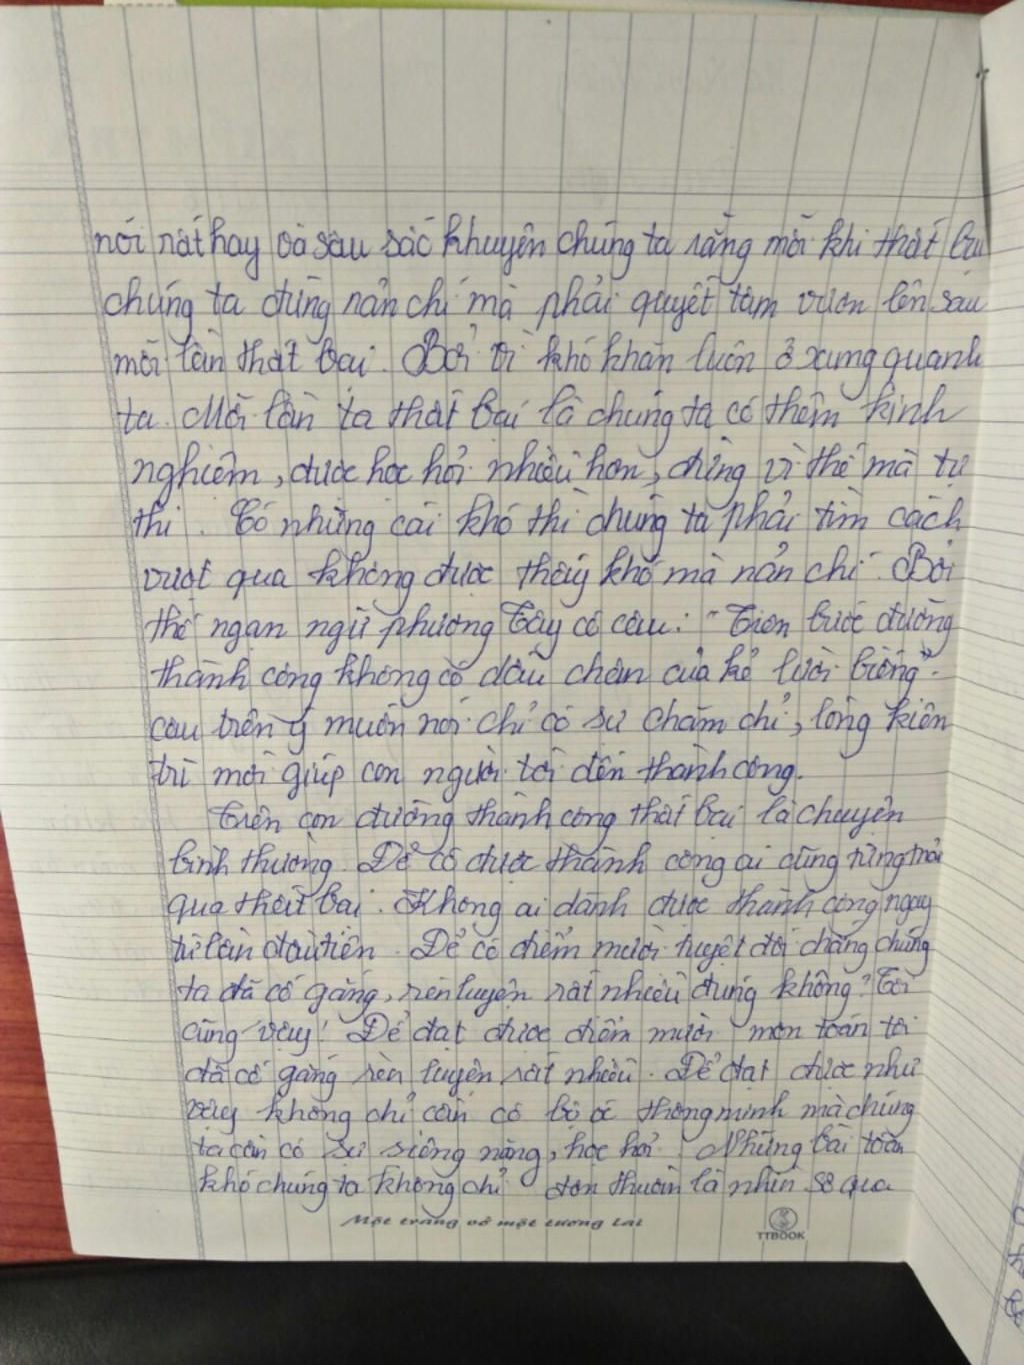 nói rất hay và sâu sắc khuyên chúng ta rằng mỗi khi thất bại
chúng ta đừng nản chí mà phải quyết tâm vươn lên sau
mỗi lần thất bại. Bởi vì khó khăn luôn ở xung quanh
ta. Mỗi lần ta thất bại là chúng ta có thêm kinh
nghiệm, được học hỏi nhiều hơn, đừng vì thế mà tự
thi. Có những cái khó thì chúng ta phải tìm cách
vượt qua không được thấy khó mà nản chí. Bởi
thế ngạn ngữ phương Tây có câu: "Trên bước đường
thành công không có dấu chân của kẻ lười biếng".
câu trên ý muốn nói chỉ có sự chăm chỉ, lòng kiên
trì mới giúp con người tới đến thành công.
Trên con đường thành công thất bại là chuyện
bình thường. Để có được thành công ai cũng từng trải
qua thất bại. Không ai dành được thành công ngay
từ lần đầu tiên. Để có điểm mười tuyệt đối chẳng chúng
ta đã cố gắng, rèn luyện rất nhiều đúng không? Tôi
cũng vậy! Để đạt được điểm mười môn toán tôi
đã cố gắng rèn luyện rất nhiều. Để đạt được như
vậy không chỉ cần có bộ óc thông minh mà chúng
ta cần có sự siêng năng, học hỏi. Những bài toán
khó chúng ta không chỉ đơn thuần là nhìn sơ qua
Một trang vở một tương lai
TTBOOK